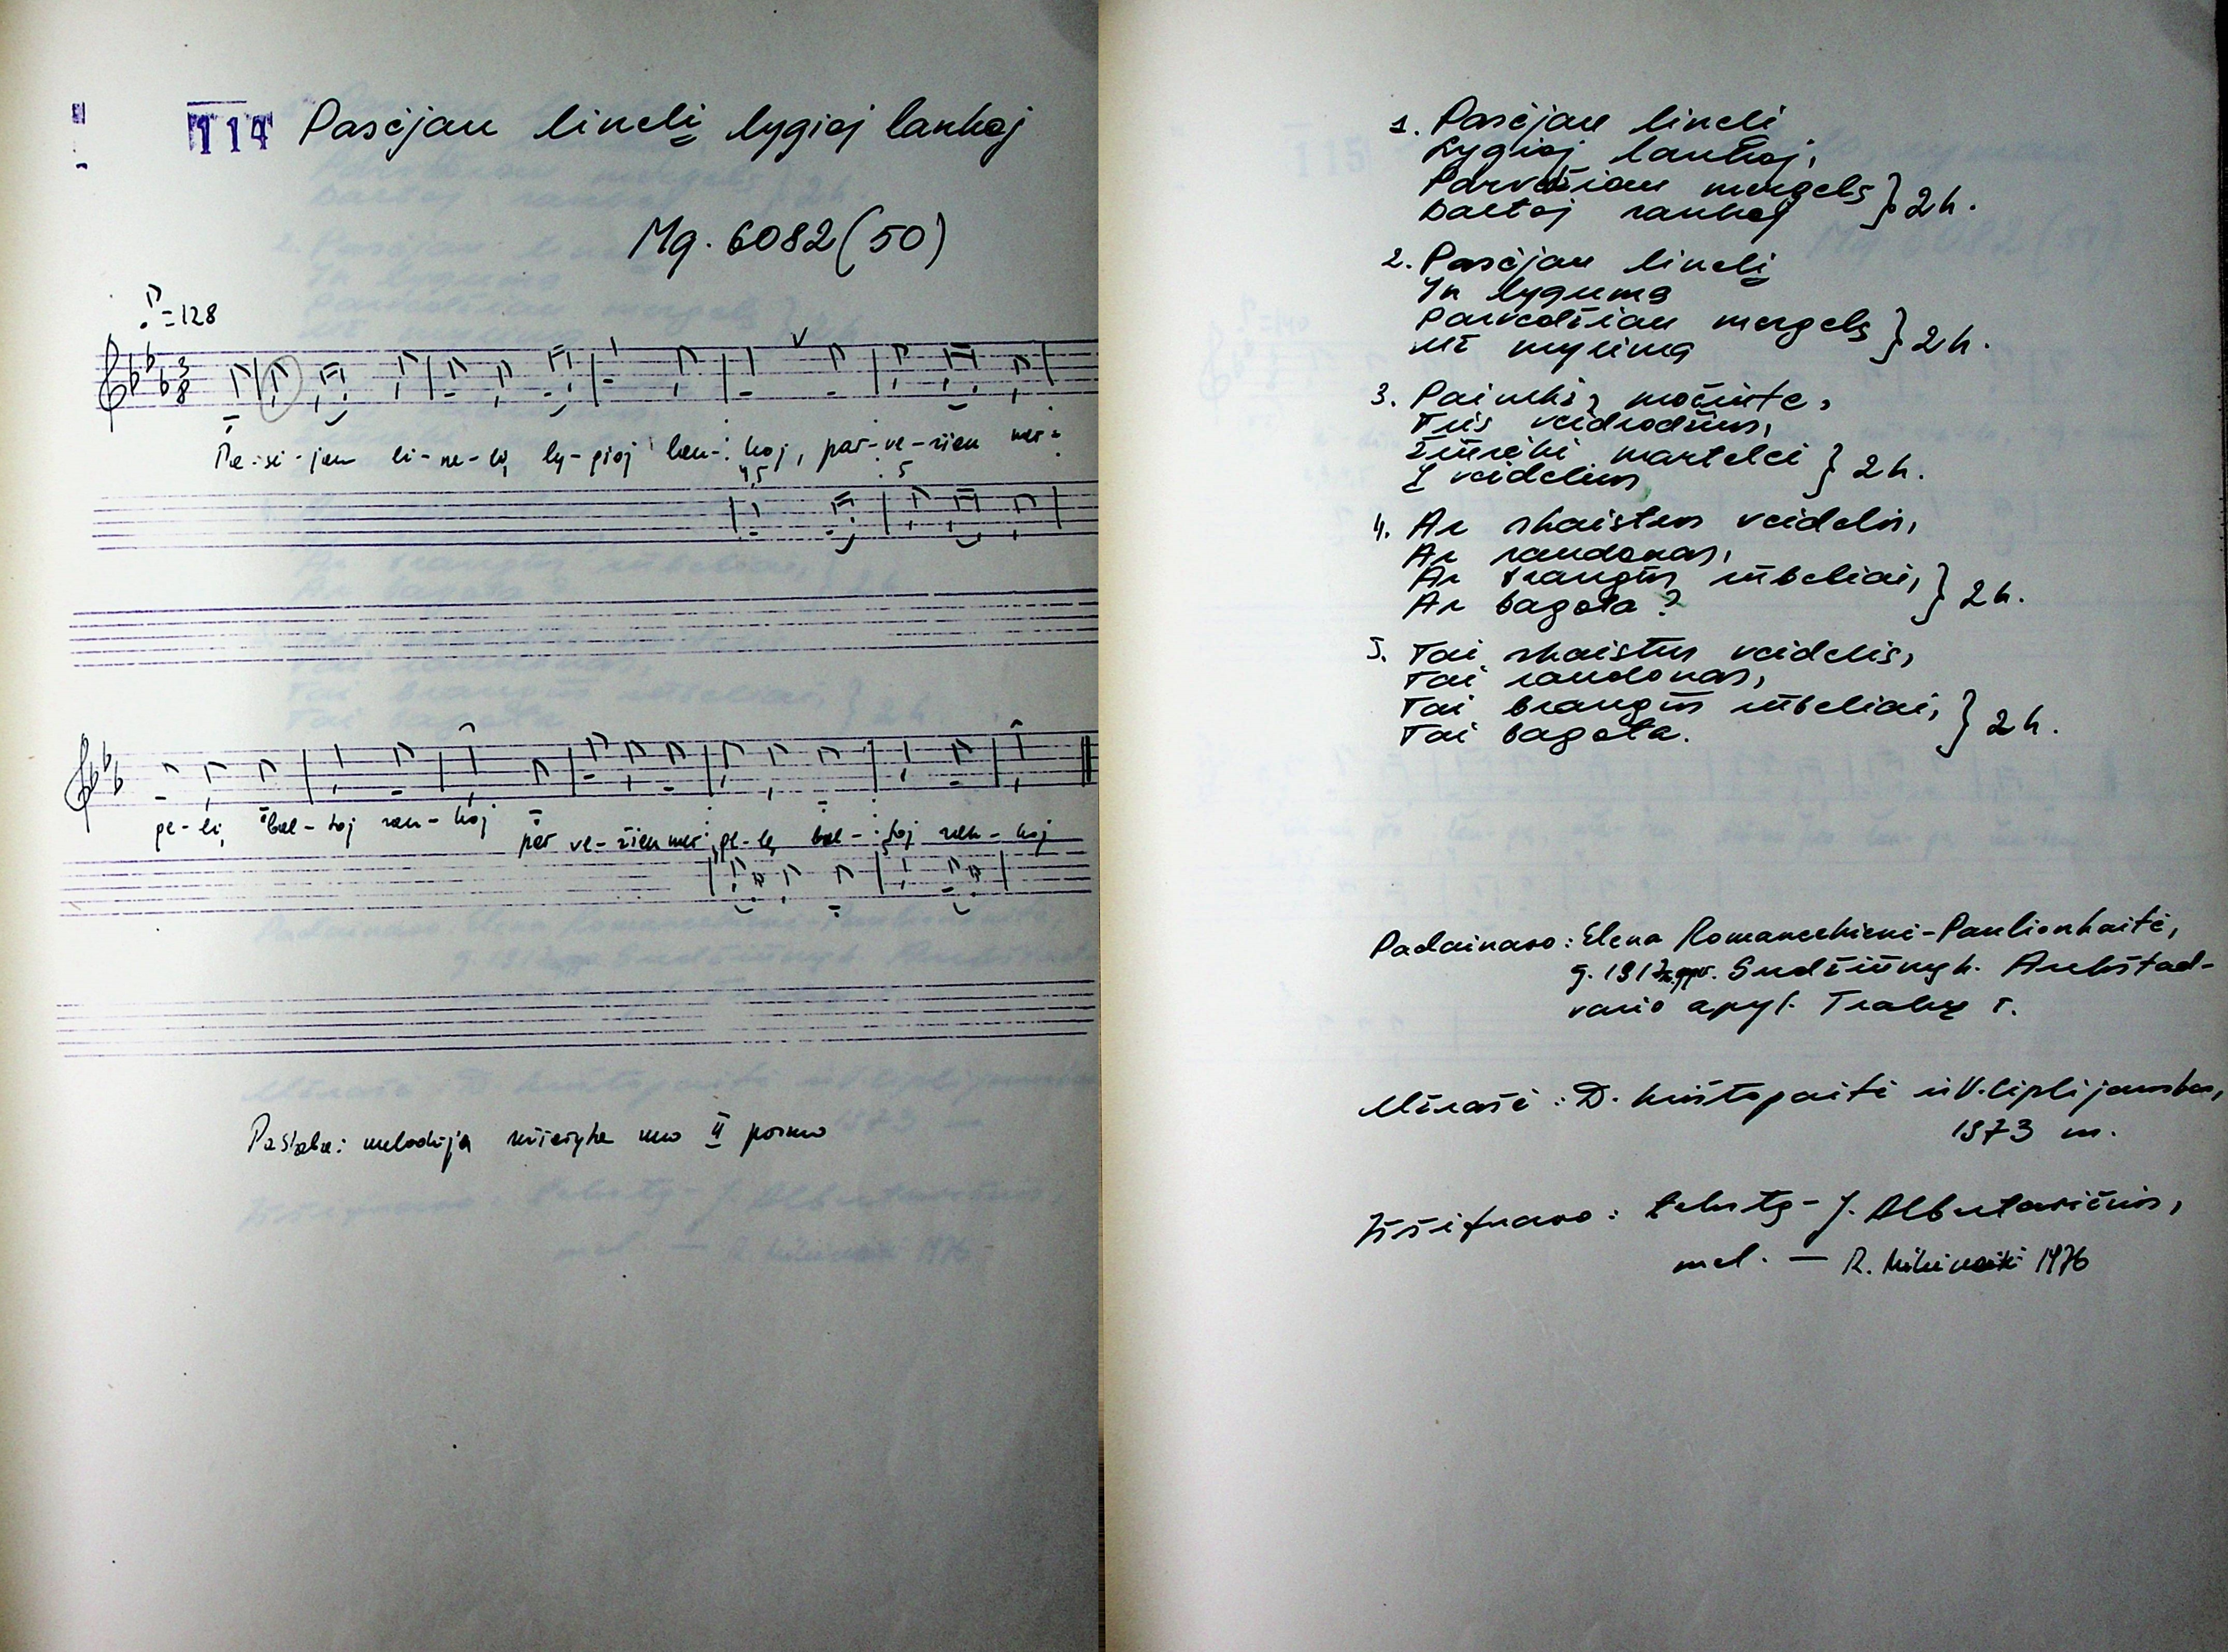 114 Pasėjau linelį lygioj lankoj
Mg. 6082 (50)
♪=128
3
8
Pa-sė-jau li-ne-lį ly-gioj lan-koj, par-ve-žiau mer-
4,5 5
ge-lį, bal-toj ran-koj par ve-žiau mer ge-lę bal-toj ran-koj
Pastaba: melodija nuo II posmo
1. Pasėjau linelį
Lygioj lankoj,
Parvežiau mergelę } 2k.
Baltoj rankoj
2. Pasėjau linelį
In lygumą
Parvedžiau mergelę } 2k.
Už mylimą
3. Painki, močiute,
Tris veidrodžius,
Žiūrėki martelei } 2k.
Į veidelius
4. Ar skaistus veidelis,
Ar raudonas,
Ar brangūs rūbeliai, } 2k.
Ar bagota?
5. Tai skaistus veidelis,
Tai raudonas,
Tai brangūs rūbeliai, } 2k.
Tai bagota.
Padainavo: Elena Romaneckienė-Paulionkaitė,
g. 1917 m. gyv. Sudžiūnų k. Aukštad-
vario apyl. Trakų r.
Užrašė: D. Krištopaitė ir V. Ciplijauskas,
1973 m.
Iššifravo: tekstą - J. Albertavičius,
mel. — R. 1976